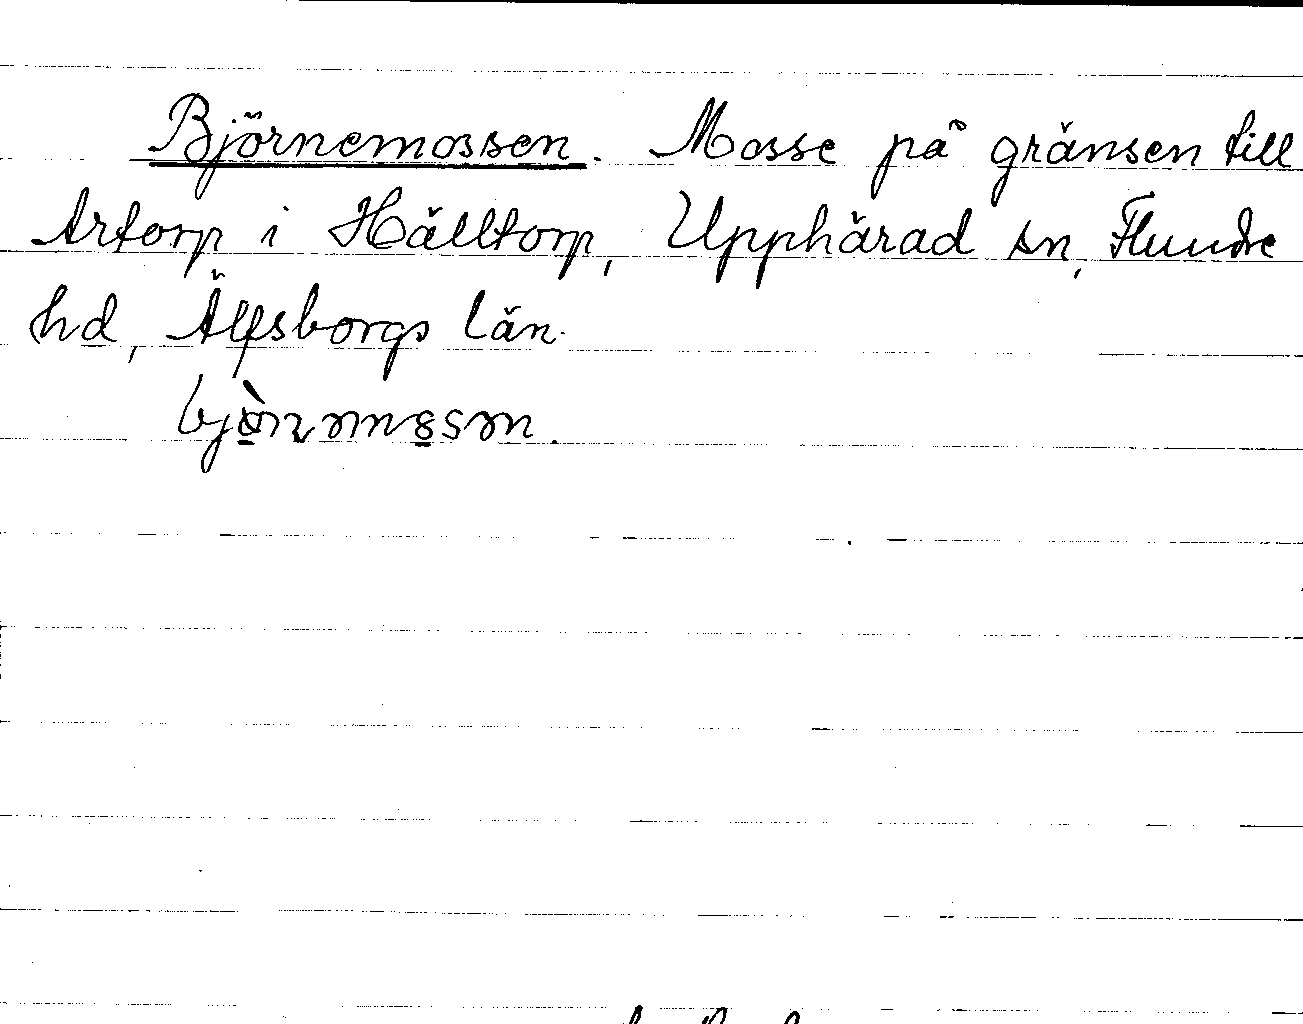 Björnemossen. Mosse på gränsen till
Artorp i Hälltorp, Upphärad sn, Flundre
hd, Älfsborgs län.